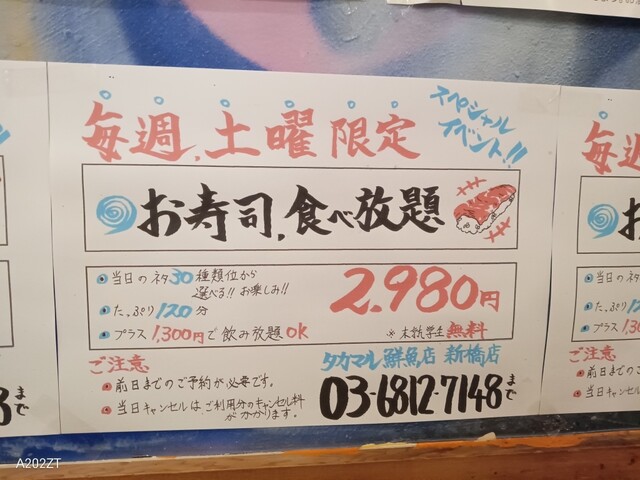 毎週、土曜限定
スペシャル
イベント!!
お寿司、食べ放題
当日のネタ30種類位から
選べる!! お楽しみ!!
たっぷり120分
プラス1,300円で飲み放題OK
2,980円
※未就学生無料
ご注意
前日までのご予約が必要です。
当日キャンセルはご利用分のキャンセル料
がかかります。
タカマル鮮魚店 新橋店
03-6812-7148まで
A202ZT